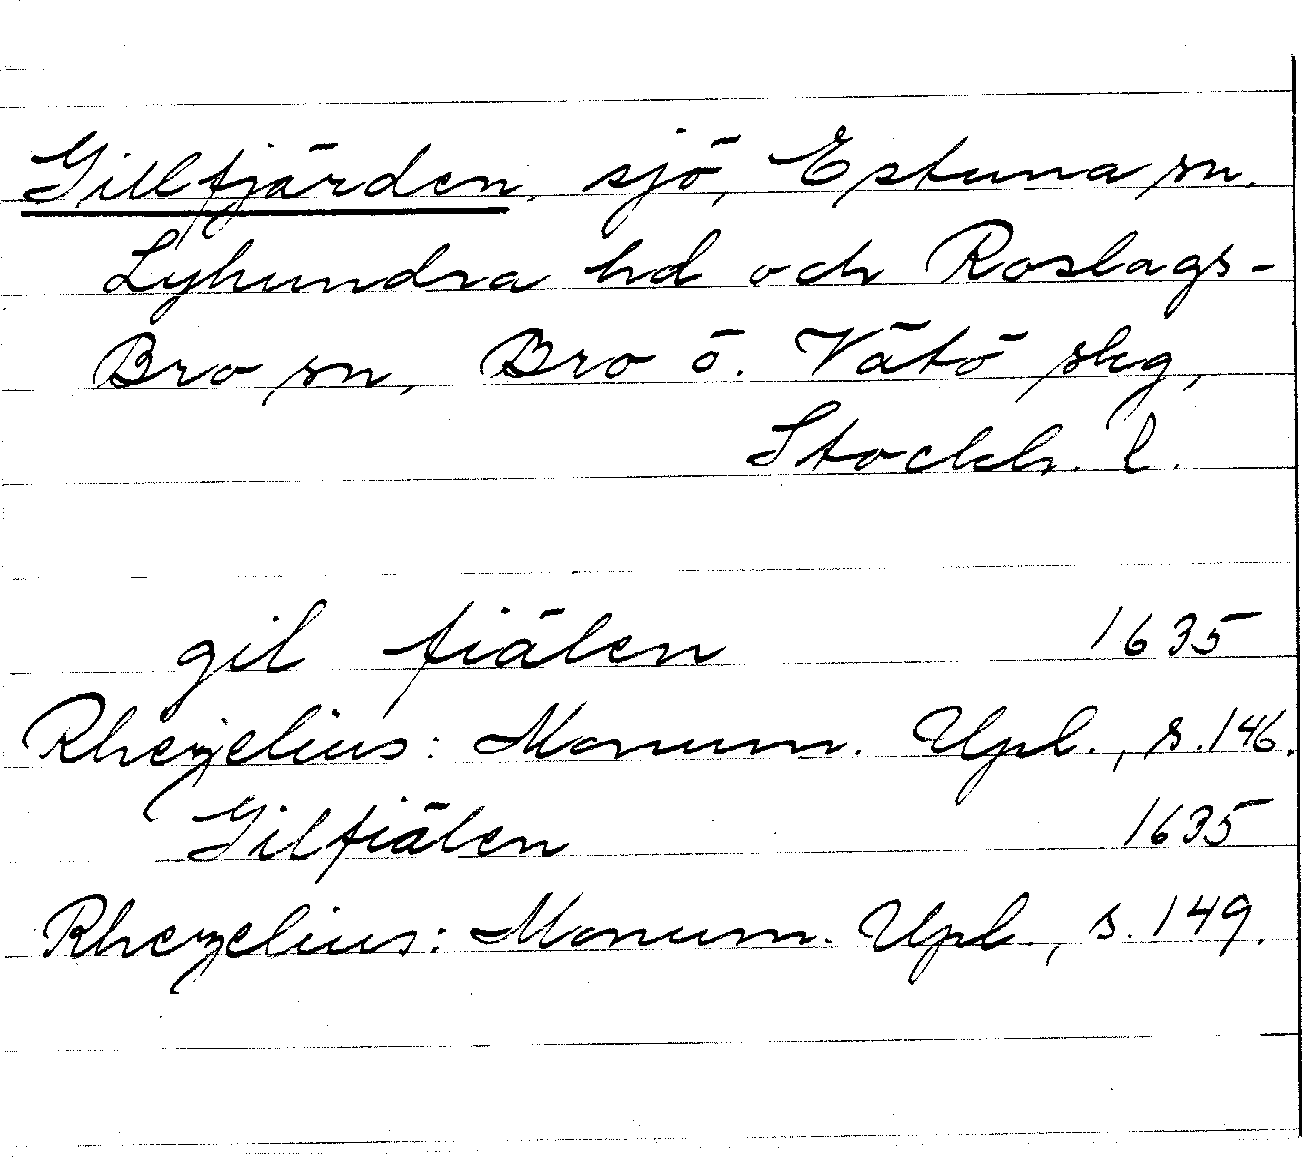 Gillfjärden, sjö, Estuna sn.
Lyhundra hd och Roslags-
Bro sn, Bro o. Vätö skg,
Stockh. l.
gil fiälen 1635
Rhezelius: Monum. Upl., s. 146.
Gilfiälen 1635
Rhezelius: Monum. Upl., s. 149.